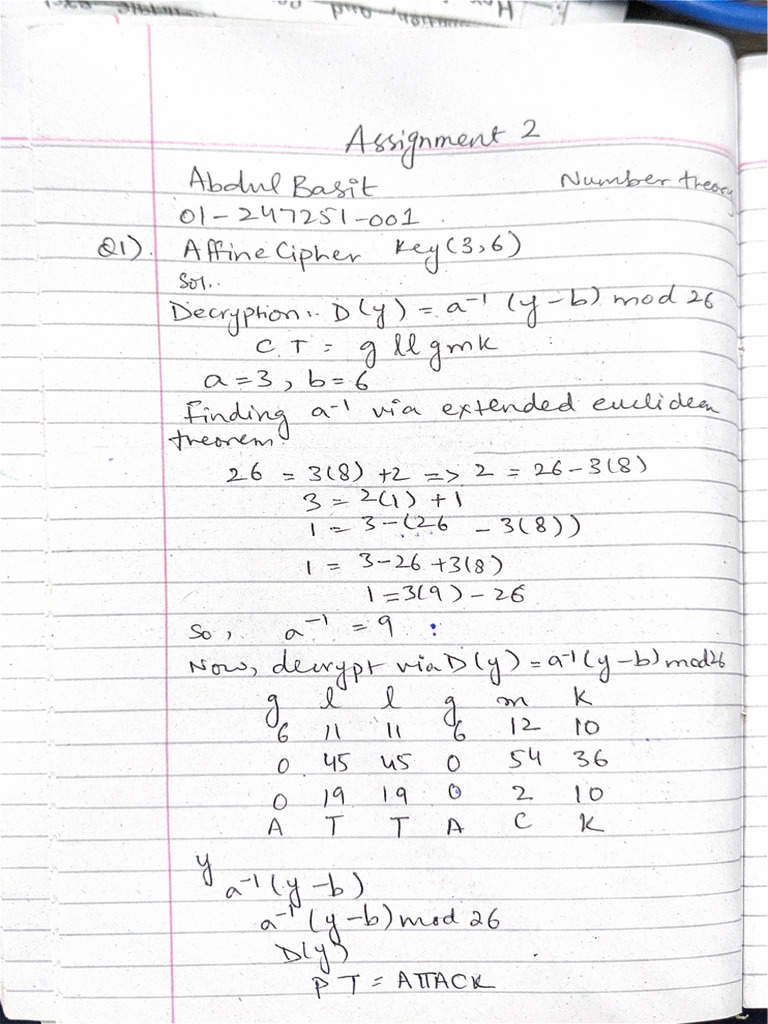 Assignment 2
Abdul Basit Number theory
01-247251-001
Q1). Affine Cipher Key (3,6)
Sol..
Decryption:. D(y) = a⁻¹ (y-b) mod 26
C.T = g ll g m k
a=3, b=6
Finding a⁻¹ via extended euclidean
treorem:
26 = 3(8) +2 => 2 = 26-3(8)
3 = 2(1) + 1
1 = 3-(26 - 3(8))
1 = 3-26 +3(8)
1 = 3(9) - 26
So, a⁻¹ = 9 :
Now, decrypt via D(y) = a⁻¹(y-b) mod 26
g l l g m k
6 11 11 6 12 10
0 45 45 0 54 36
0 19 19 0 2 10
A T T A C K
y
a⁻¹ (y-b)
a⁻¹ (y-b) mod 26
D(y)
PT = ATTACK